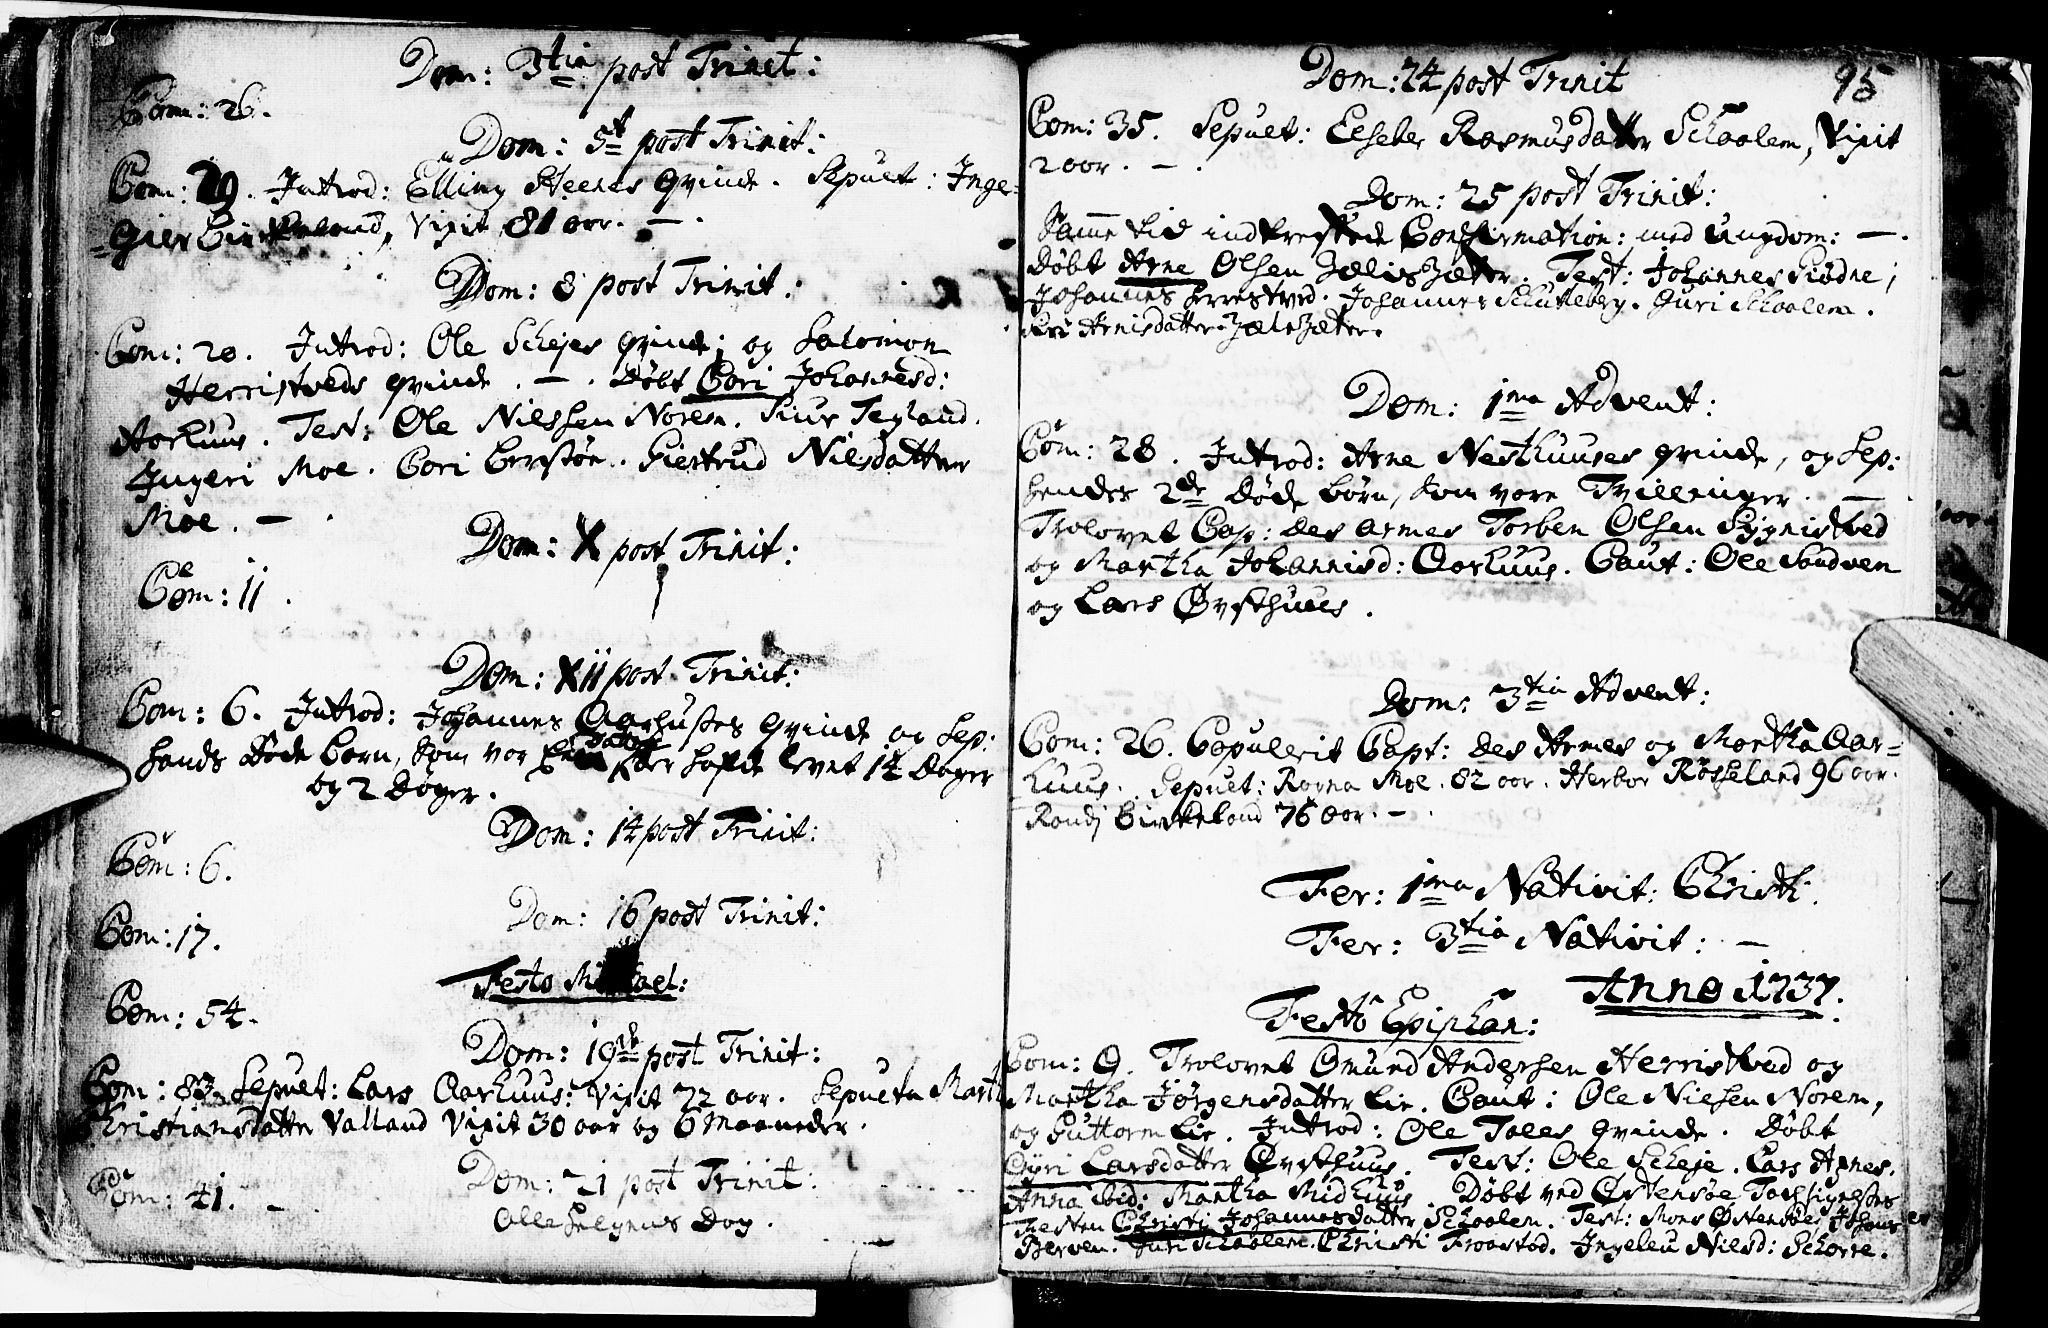 Dom: 3tia post Trinit:
Com: 26.
Dom: 5t post Trinit:
Com: 29. Introd: Elling Steenes qvinde. Sepuet: Inge=
=gier Birkeland, Vixit 81 aar. —.
Dom: 8 post Trinit:
Com: 20. Introd: Ole Schejes qvinde; og Salomon
Herristveds qvinde. —. Döbt Gori Johannesd:
Aarhuus. Test: Ole Nielssen Norem. Siur Tegland.
Ingeri Moe. Gori Berstøe. Giertrud Nielsdatter
Moe. —.
Dom: X post Trinit:
Com: 11.
Dom: XII post Trinit:
Com: 6. Introd: Johannes Aarhuses qvinde og Sep:
hands Döde Born, som vor datter hafde levet 14 Dager
og 2 Döger.
Dom: 14 post Trinit:
Com: 6.
Dom: 16 post Trinit:
Com: 17.
Festo Michael:
Com: 54.
Dom: 19de post Trinit:
Com: 83. Sepuet: Lars Aarhuus: Vixit 22 aar. Sepueta Marti
Christiansdatter Valland Vixit 30 aar og 6 Maaneder.
Dom: 21 post Trinit:
Com: 41. —
Alle Helgens Dag.
95
Dom: 24 post Trinit
Com: 35. Sepuet: Elsebe Rasmusdatter Schaalem, Vixit
2 aar. —.
Dom: 25 post Trinit:
Samme tid indtrestede Confirmation: med Ungdom: —.
Döbt Arne Olsen Jælisæter. Test: Johannes Siødne;
Johannes Herrestved. Johannes Schutleberg. Guri Schaalem.
Arnisdatter Jælesæter.
Dom: 1ma Advent:
Com: 28. Introd: Arne Nesthuuses qvinde, og Sep:
hendes 2de Döde börn, som vare Tvillinger. —
Trolovet Cap: des armes Torben Olsen Sygnistved
og Martha Johannisd: Aarhuus. Caut: Ole Sandven
og Lars Øvsthuus.
Dom: 3tia Advent:
Com: 26. Copulerit Capt: des Armes og Martha Aar=
huus. Sepuet: Ragna Moe. 82 aar. Herbor Røsseland 96 aar.
Randj Birkeland 76 aar. —
Fer: 1ma Nativit: Christi:
Fer: 3tia Nativit: —
Anno 1737.
Festo Epiphan:
Com: 9. Trolovet Omund Andersen Herristved og
Martha Jørgensdatter Lie. Caut: Ole Nielsen Norem,
og Guttorm Lie. Introd: Ole Tolles qvinde. Döbt
Larsdatter Øvsthuus. Test: Ole Scheje. Lars Agnes.
Anna ibid: Martha Midhuus. Döbt ved Østensöe
Christi Johannesdatter Schaalem. Test: Mons Østensöe, Johannes
Berven. Guri Schaalem. Christi Froastad. Ingeleu Nielsd: Schorre.